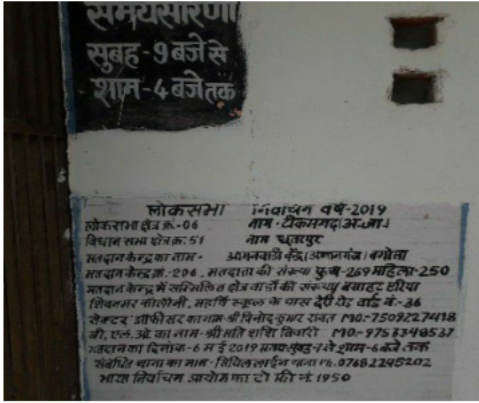 समयसारणी
सुबह-9 बजे से
शाम-4 बजे तक
लोकसभा निर्वाचन वर्ष-2019
लोकसभा क्षेत्र क्र.-06 नाम-टीकमगढ़(अ.जा.)
विधान सभा क्षेत्र क्र. 51 नाम छतरपुर
मतदान केन्द्र का नाम- आंगनवाड़ी केंद्र
मतदान केन्द्र क्र.-206, मतदाता की संख्या पुरुष-269 महिला-250
मतदान केन्द्र में सम्मिलित क्षेत्र वार्डो की संख्या
कॉलोनी, महर्षि स्कूल के पास देरी रोड वार्ड नं.-36
सेक्टर ऑफीसर का नाम श्री विनोद कुमार रावत MO.-7509227418
बी. एल. ओ. का नाम-श्री मति राशि तिवारी MO.-9753348537
मतदान का दिनांक-6 मई 2019 समय सुबह-7 से शाम-6 बजे तक
संबंधित थाना का नाम- सिविल लाईन 07682245202
निर्वाचन आयोग का टोल फ्री नं. 1950